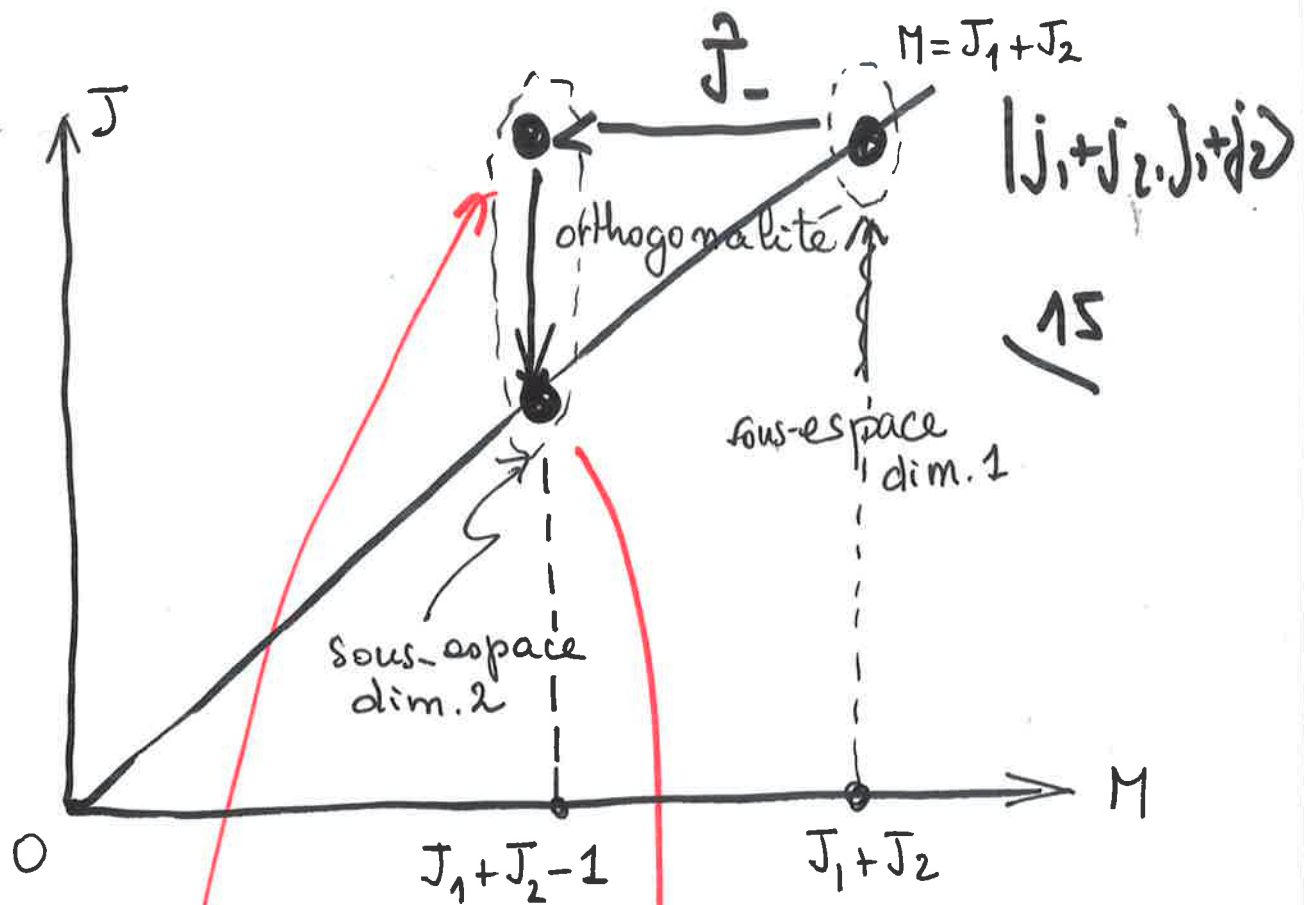 J
Ĵ₋
M = J₁ + J₂
|j₁+j₂, j₁+j₂⟩
orthogonalité
15
sous-espace
dim. 1
sous-espace
dim. 2
O
J₁ + J₂ - 1
J₁ + J₂
M